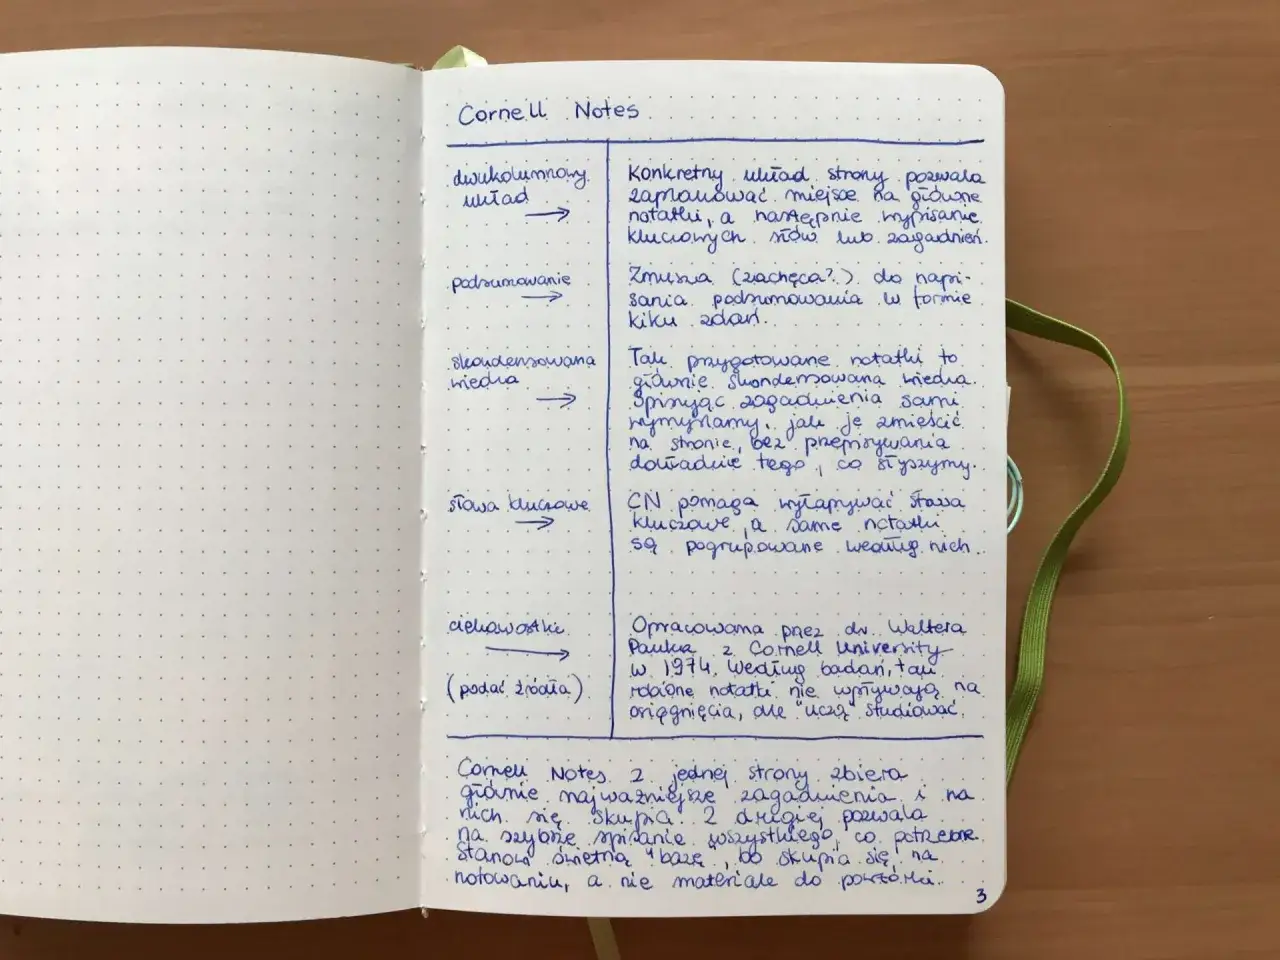 Cornell Notes
dwukolumnowy
układ
→
Konkretny układ strony pozwala
zaplanować miejsce na główne
notatki, a następnie wypisanie
kluczowych słów lub zagadnień.
podsumowanie
→
Zmusza (zachęca?) do napi-
sania podsumowania w formie
kilku zdań.
skondensowana
wiedza
→
Tak przygotowane notatki to
głównie skondensowana wiedza.
Spisując zagadnienia sami
wymyślamy, jak je zmieścić
na stronie, bez przepisywania
dokładnie tego, co słyszymy.
słowa kluczowe
→
CN pomaga wyłapywać słowa
kluczowe, a same notatki
są pogrupowane według nich.
ciekawostki
→
(podać źródła)
Opracowana przez dr. Waltera
Pauka z Cornell University
w 1974. Według badań, tak
robione notatki nie wpływają na
osiągnięcia, ale "uczą" studiować.
Cornell Notes z jednej strony zbiera
głównie najważniejsze zagadnienia i na
nich się skupia. Z drugiej pozwala
na szybkie spisanie wszystkiego, co potrzebne.
Stanowi świetną "bazę", bo skupia się na
notowaniu, a nie materiale do powtórki.
3